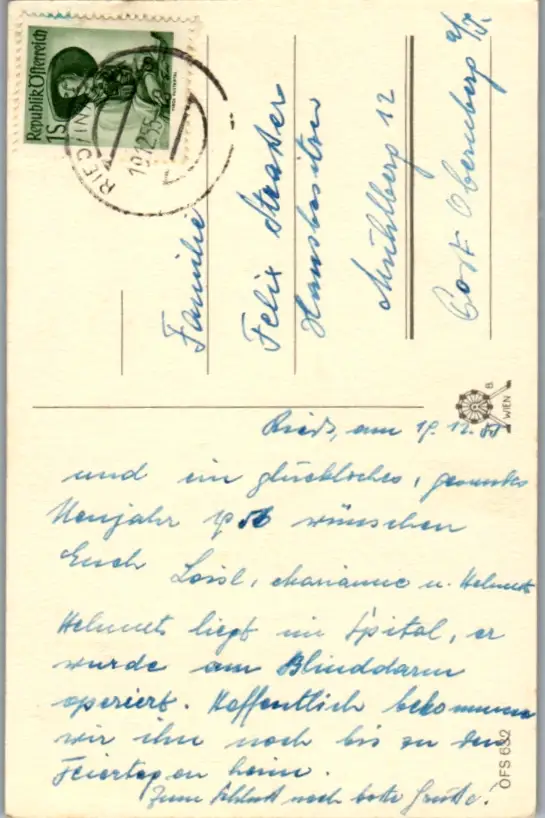 Republik Österreich
1 S
RIED / INN
19.12.55
Familie
Felix Strasser
Hausbesitzer
Mühlberg 12
Post Obernberg a/I.
B.
WIEN
Ried, am 19.12.55
und ein glückliches, gesundes
Neujahr 1956 wünschen
Euch Loisl, Marianne u. Helmut
Helmut liegt im Spital, er
wurde am Blinddarm
operiert. Hoffentlich bekommen
wir ihn noch bis zu den
Feiertagen heim.
Zum Schluß noch beste Grüße.
OFS 632